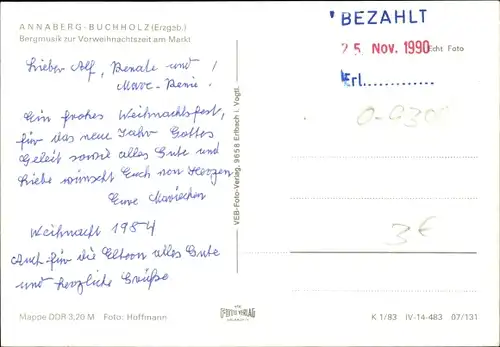 ANNABERG-BUCHHOLZ (Erzgeb.)
Bergmusik zur Vorweihnachtszeit am Markt
Lieber Alf, Renate und
Marc-René!
Ein frohes Weihnachtsfest,
für das neue Jahr Gottes
Geleit sowie alles Gute und
Liebe wünscht Euch von Herzen
Eure Mariechen
Weihnacht 1984
Auch für die Eltern alles Gute
und herzliche Grüße
Mappe DDR 3,20 M Foto: Hoffmann
VEB-Foto-Verlag, 9658 Erlbach i. Vogtl.
BEZAHLT
25 Nov. 1990
Echt Foto
Erl............
3€
K 1/83 IV-14-483 07/131